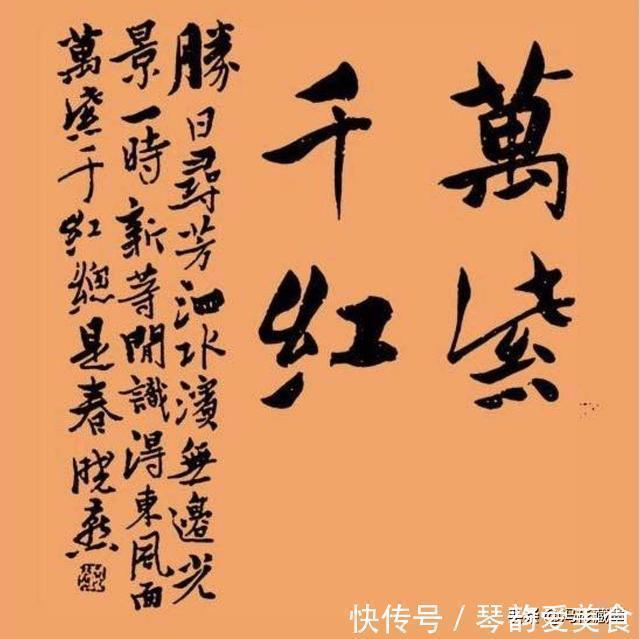 萬紫
千红
勝日尋芳泗水濱無邊光
景一時新等閒識得東風面
萬紫千红總是春
快传号 / 琴韵爱美食